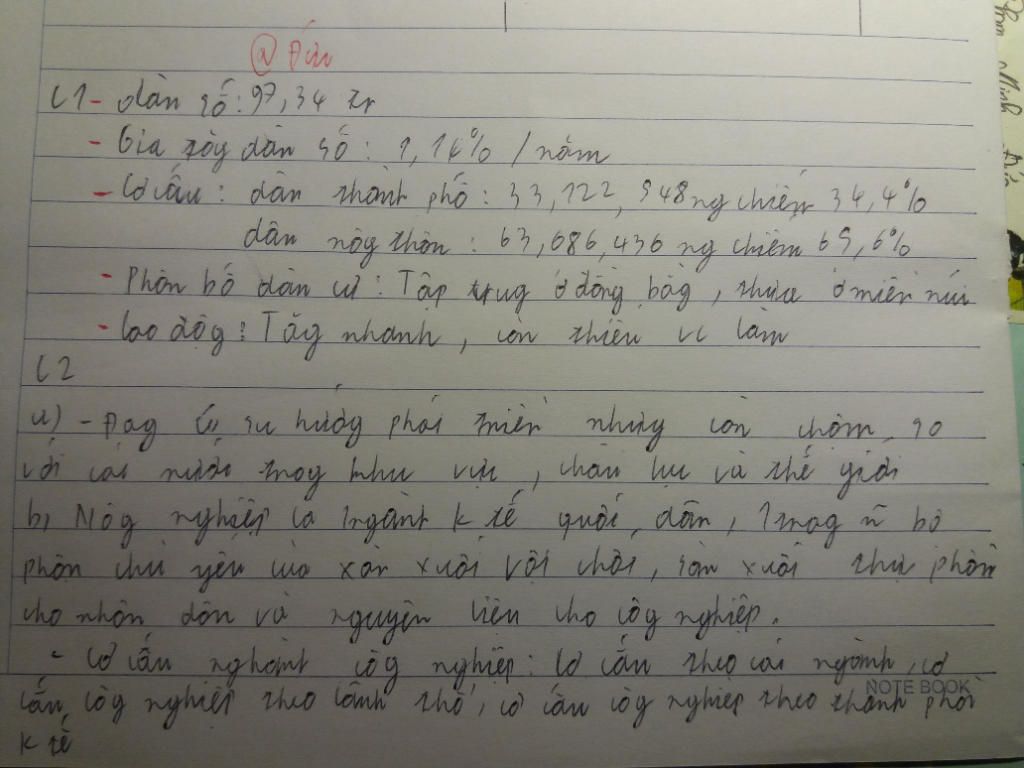 @ Đức
C1 - dân số: 97,34 tr
- Gia tăng dân số: 1,14% / năm
- Cơ cấu: dân thành phố: 33,122,548 ng chiếm 34,4%
dân nôg thôn: 63,086,436 ng chiếm 65,6%
- Phân bố dân cư: Tập trug ở đồng bằg, thưa ở miền núi
- Lao độg: Tăg nhanh, còn thiếu vc làm
C2
a) - Đag xu hướg phát triển nhưng còn chậm, so
với các nước trog khu vực, châu lục và thế giới
b, Nôg nghiệp là 1 ngành k tế quốc dân, 1 trog n~ bộ
phận chủ yếu của sản xuất vật chất, sản xuất thực phẩm
cho nhân dân và nguyên liệu cho côg nghiệp.
- Cơ cấu nghành côg nghiệp: Cơ cấu theo các ngành, cơ
cấu côg nghiệp theo lãnh thổ, cơ cấu côg nghiệp theo thành phần
k tế
NOTE BOOK